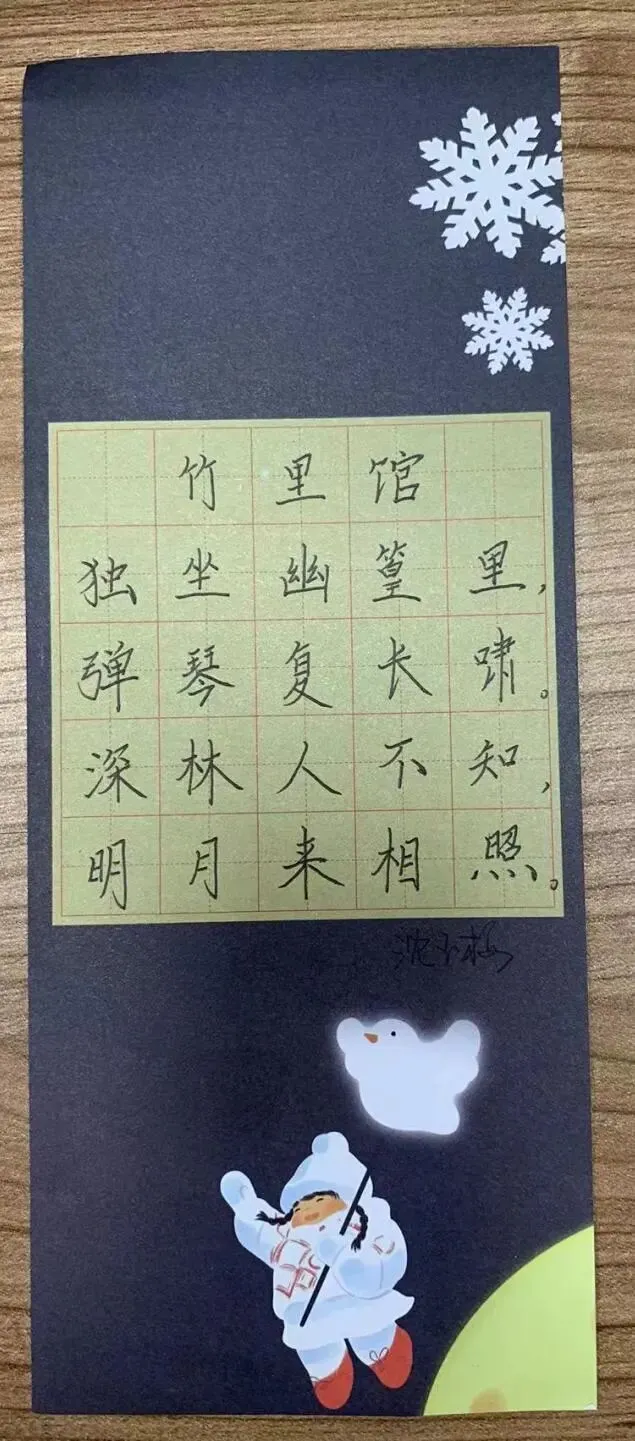 竹里馆
独坐幽篁里，
弹琴复长啸。
深林人不知，
明月来相照。
沈玉梅